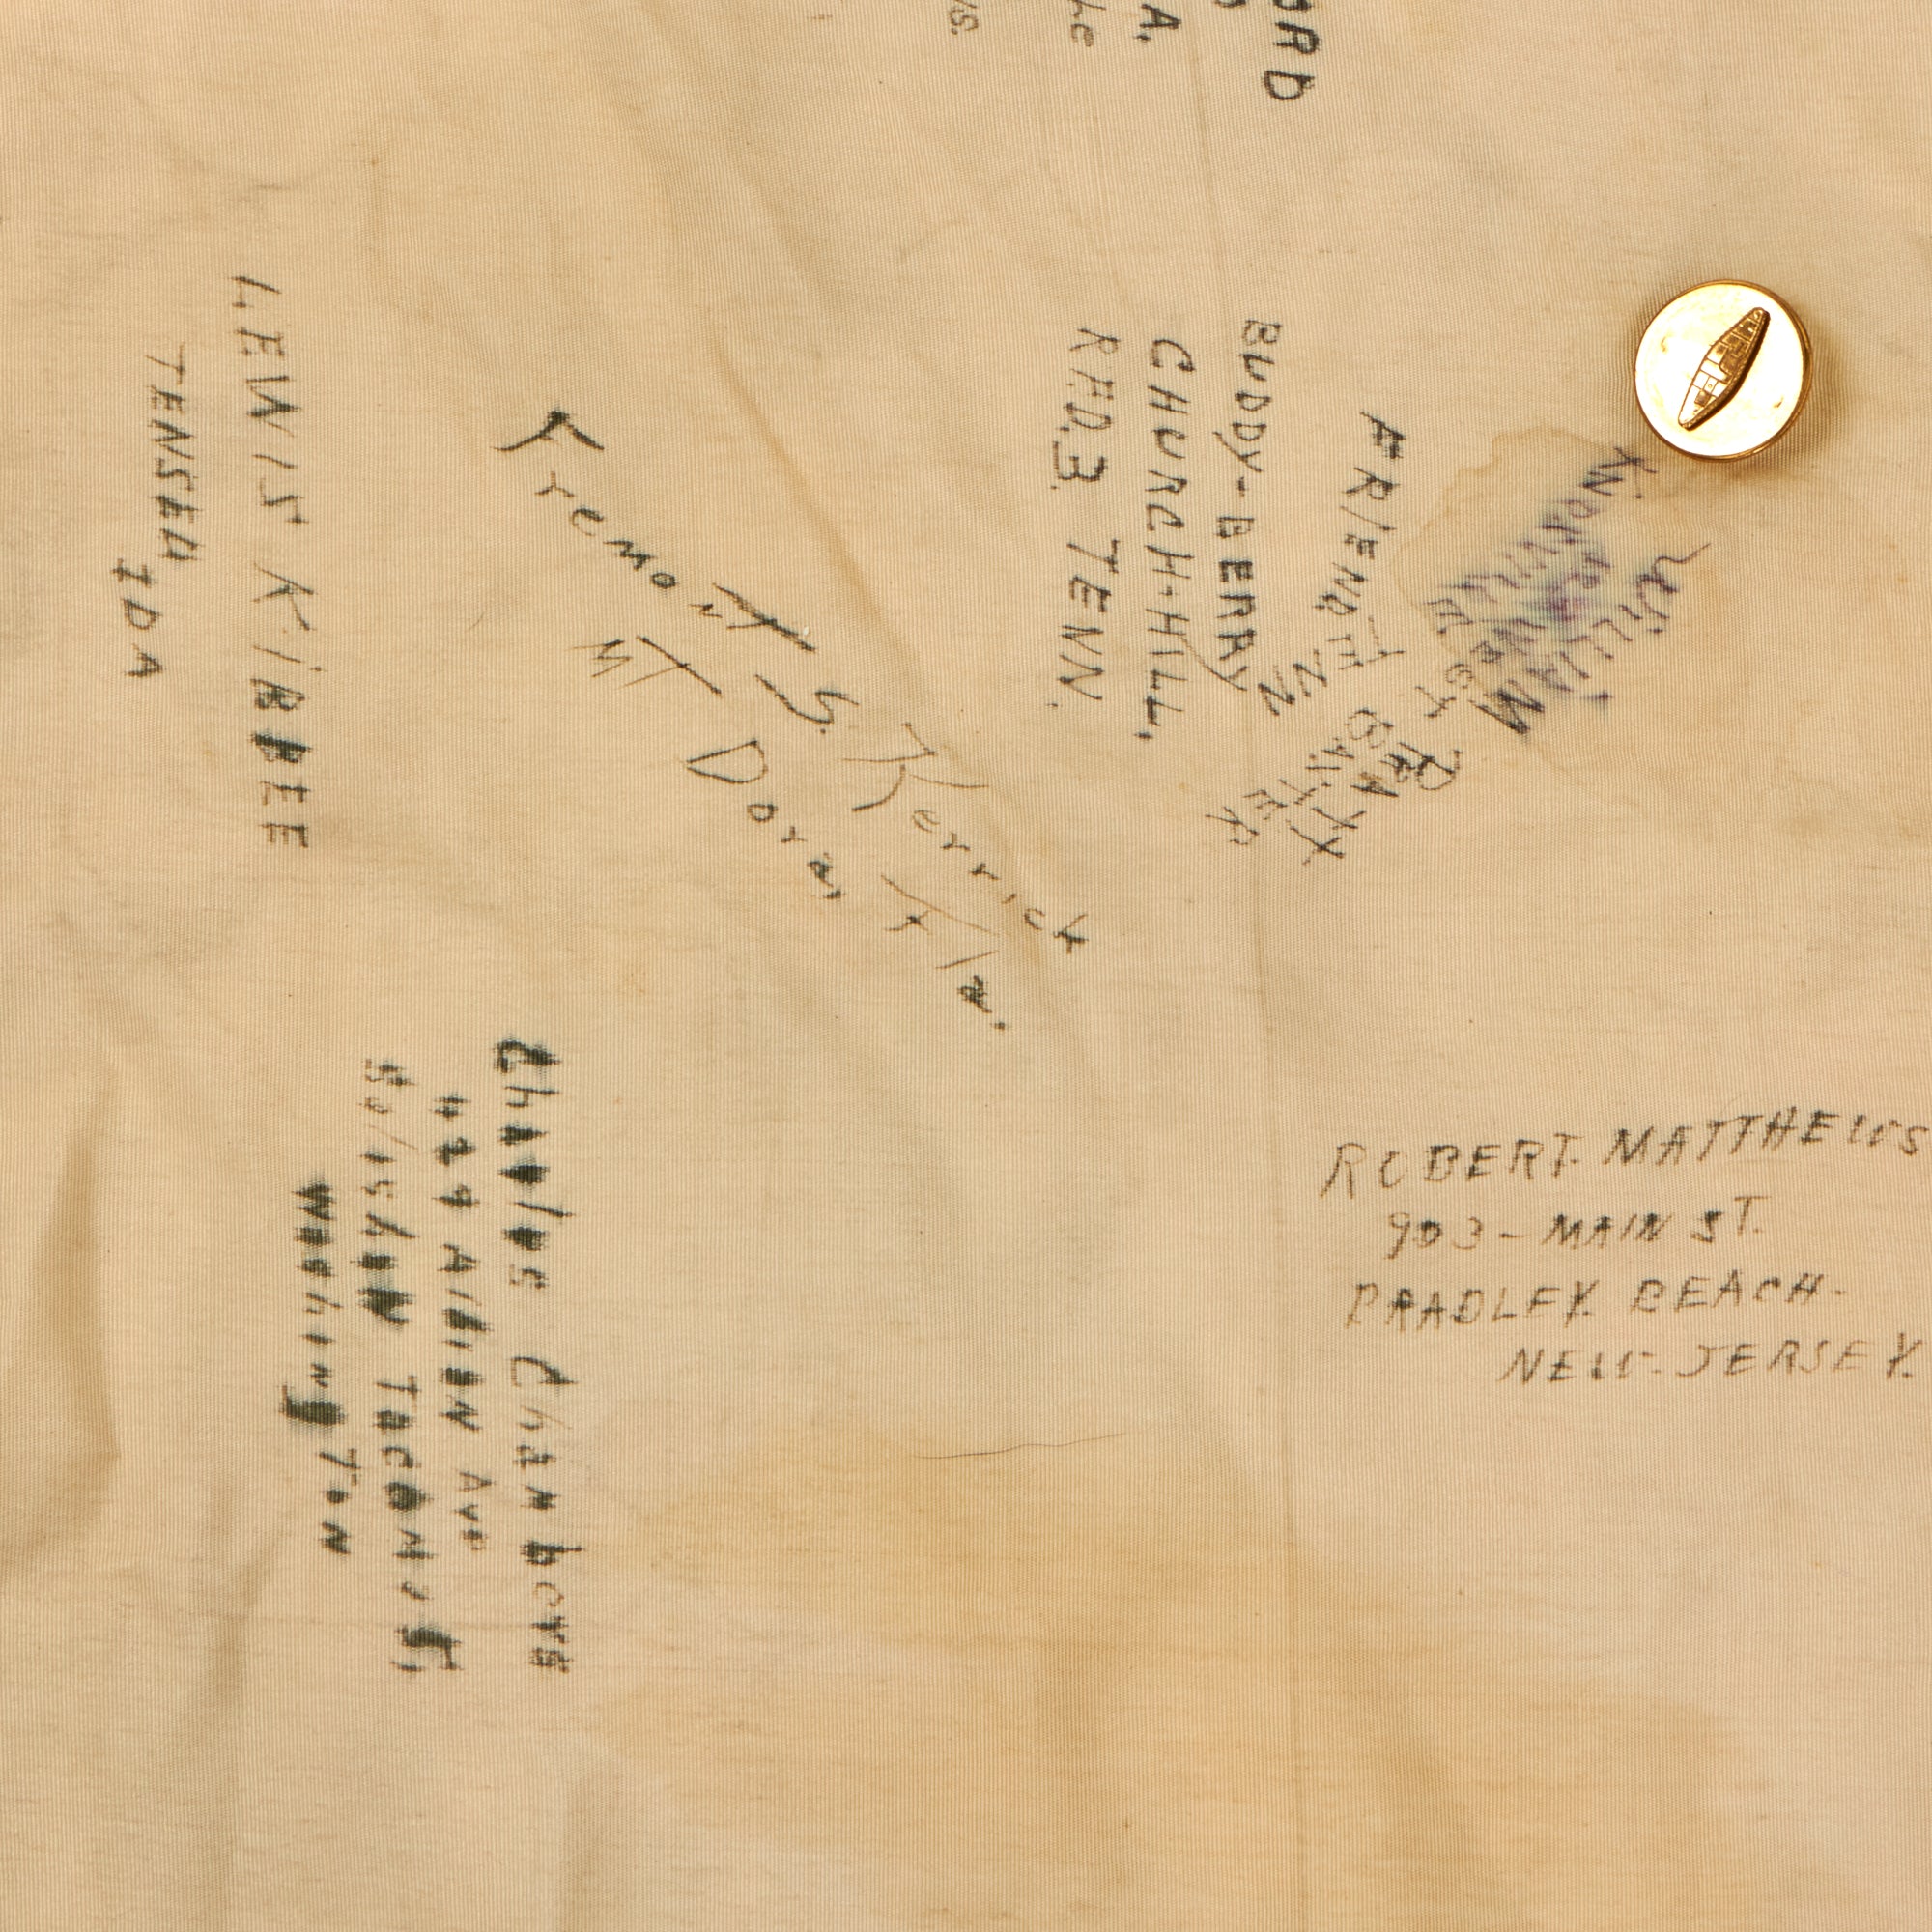 ORD
A.
he
vs.
LEWIS KIBBEE
TENSED
IDA
Fremont S. Kerrick
MT Dora, Fla.
BUDDY-BERRY
CHURCH-HILL,
R.F.D.3. TENN.
FRIEND
TENN
BAXTER
WILLIAM
WEST
KNOXVILLE
Charles Chambers
Aiben Ave
Tacoma,
Washington
ROBERT. MATTHEWS
903-MAIN ST.
BRADLEY. BEACH.
NEW-JERSEY.